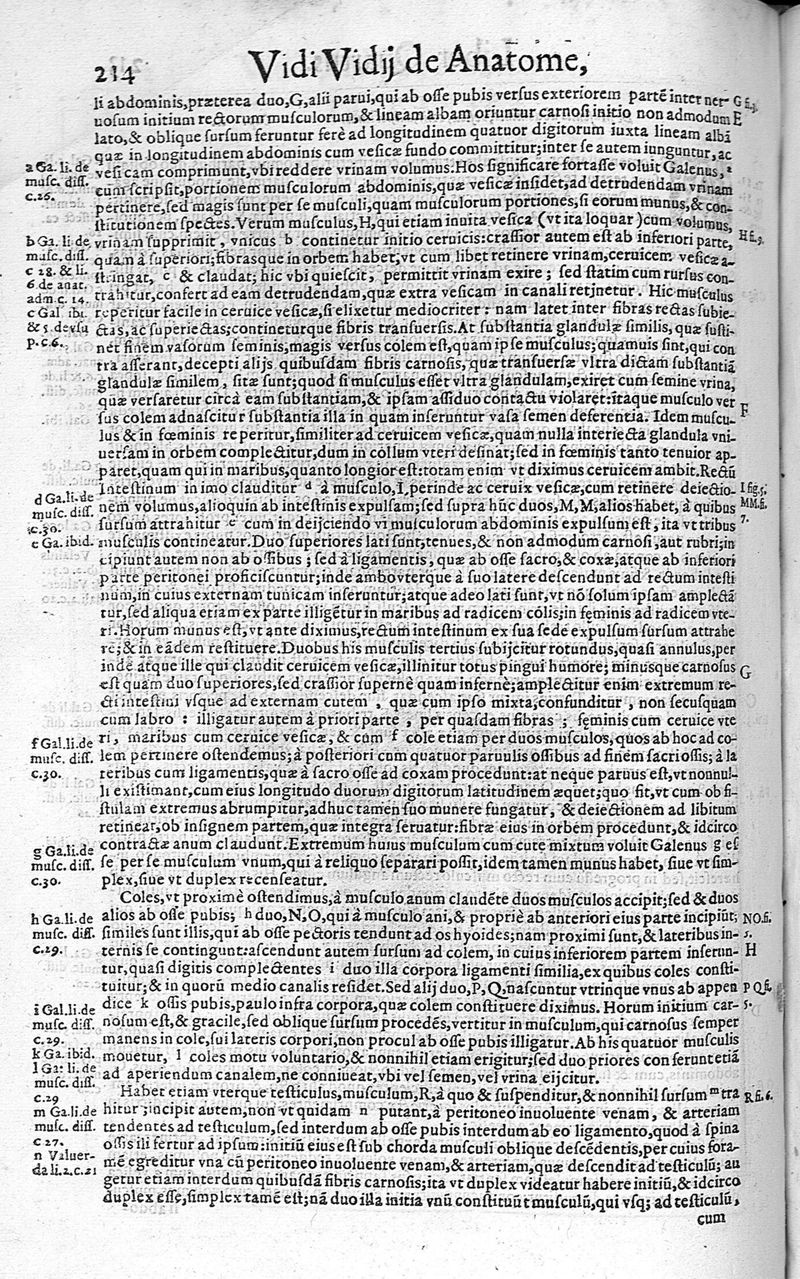 214 Vidi Vidij de Anatome,
li abdominis,præterea duo,G,alii parui,qui ab osse pubis versus exteriorem partē inter ner- G fi.5.
uosum initium rectorum musculorum,& lineam albam oriuntur carnosi initio non admodum E
lato,& oblique sursum feruntur ferè ad longitudinem quatuor digitorum iuxta lineam albā
quæ in longitudinem abdominis cum vesicæ fundo committitur;inter se autem iunguntur,ac
a Ga. li. de vesicam comprimunt,vbi reddere vrinam volumus.Hos significare fortasse voluit Galenus, a
musc. diss. cum scripsit,portionem musculorum abdominis,quæ vesicæ insidet,ad detrudendam vrinam
c.26. pertinere,sed magis sunt per se musculi,quam musculorum portiones,si eorum munus,& con-
stitutionem spectes.Verum musculus,H,qui etiam inuita vesica (vt ita loquar) cum volumus,
b Ga. li. de vrinam supprimit, vnicus b continetur initio ceruicis:crassior autem est ab inferiori parte, H fi.5.
musc. diss. quam à superiori;fibrasque in orbem habet,vt cum libet retinere vrinam,ceruicem vesicæ a-
c 28. & li. stringat, c & claudat; hic vbi quiescit, permittit vrinam exire; sed statim cum rursus con-
6 de anat. adm c. 14. trahitur,confert ad eam detrudendam,quæ extra vesicam in canali retjnetur. Hic musculus
c Gal. ibi. reperitur facile in ceruice vesicæ,si elixetur mediocriter: nam latet inter fibras rectas subie-
& 5. de vsu ctas,ac superiectas;contineturque fibris transuersis.At substantia glandulæ similis,quæ susti-
p.c6. net finem vasorum seminis,magis versus colem est,quam ipse musculus;quamuis sint,qui con
tra asserant,decepti alijs quibusdam fibris carnosis,quæ transuersæ vltra dictam substantiā
glandulæ similem, sitæ sunt;quod si musculus esset vltra glandulam,exiret cum semine vrina,
quæ versaretur circa eam substantiam,& ipsam assiduo contactu violaret:itaque musculo ver F
sus colem adnascitur substantia illa in quam inseruntur vasa semen deferentia. Idem muscu-
lus & in fœminis reperitur,similiter ad ceruicem vesicæ,quam nulla interiecta glandula vni
uersam in orbem complectitur,dum in collum vteri desinat;sed in fœminis tanto tenuior ap-
paret,quam qui in maribus,quanto longior est:totam enim vt diximus ceruicem ambit.Rectū
d Ga.li.de Intestinum in imo clauditur d à musculo,I,perinde ac ceruix vesicæ,cum retinere deiectio- I fig.5;
musc. diss. nem volumus,alioquin ab intestinis expulsam;sed supra hūc duos,M,M,alios habet,à quibus MM.fi.
c.30. sursum attrahitur e cum in deijciendo vi musculorum abdominis expulsum est, ita vt tribus 7.
e Ga. ibid. musculis contineatur.Duo superiores lati sunt;tenues,& non admodum carnosi,aut rubri;in
cipiunt autem non ab ossibus; sed à ligamentis, quæ ab osse sacro,& coxæ,atque ab inferiori
parte peritonei proficiscuntur;inde ambo vterque à suo latere descendunt ad rectum intesti
num,in cuius externam tunicam inseruntur;atque adeo lati sunt,vt nō solum ipsam amplectā
tur,sed aliqua etiam ex parte illigētur in maribus ad radicem cōlis;in fęminis ad radicem vte-
ri.Horum munus est,vt ante diximus,rectum intestinum ex sua sede expulsum sursum attrahe
re;& in eādem restituere.Duobus his musculis tertius subijcitur rotundus,quasi annulus,per
inde atque ille qui claudit ceruicem vesicæ,illinitur totus pingui humore; minusque carnosus G
est quam duo superiores,sed crassior supernè quam infernè;amplectitur enim extremum re-
cti intestini vsque ad externam cutem, quæ cum ipso mixta,confunditur, non secusquam
cum labro: illigatur autem à priori parte, per quasdam fibras; fęminis cum ceruice vte
f Gal.li.de ri, maribus cum ceruice vesicæ, & cum f cole etiam per duos musculos, quos ab hoc ad co-
musc. diss. lem pertinere ostendemus;à posteriori cum quatuor paruulis ossibus ad finem sacri ossis; à la
c.30. teribus cum ligamentis,quæ à sacro osse ad coxam procedunt:at neque paruus est,vt nonnul-
li existimant,cum eius longitudo duorum digitorum latitudinem æquet;quo fit,vt cum ob fi-
stulam extremus abrumpitur,adhuc tamen suo munere fungatur, & deiectionem ad libitum
retineat,ob insignem partem,quæ integra seruatur:fibræ eius in orbem procedunt,& idcirco
g Ga.li.de contractæ anum claudunt.Extremum huius musculum cum cute mixtum voluit Galenus g es
musc. diss. se per se musculum vnum,qui à reliquo separari possit,idem tamen munus habet, siue vt sim-
c.30. plex,siue vt duplex recenseatur.
Coles,vt proximè ostendimus,à musculo anum claudēte duos musculos accipit;sed & duos
h Ga.li.de alios ab osse pubis; h duo,N,O,qui à musculo ani,& propriè ab anteriori eius parte incipiūt; NO.fi.
musc. diss. similes sunt illis,qui ab osse pectoris tendunt ad os hyoides;nam proximi sunt,& lateribus in- 5.
c.29. ternis se contingunt:ascendunt autem sursum ad colem,in cuius inferiorem partem inserun- H
tur,quasi digitis complectentes i duo illa corpora ligamenti similia,ex quibus coles consti-
tuitur;& in quorū medio canalis residet.Sed alij duo,P,Q,nascuntur vtrinque vnus ab appen P Q fi.
i Gal.li.de dice k ossis pubis,paulo infra corpora,quæ colem constituere diximus. Horum initium car- 5.
musc. diss. nosum est,& gracile,sed oblique sursum procedēs,vertitur in musculum,qui carnosus semper
c.29. manens in cole,sui lateris corpori,non procul ab osse pubis illigatur.Ab his quatuor musculis
k Ga. ibid. mouetur, l coles motu voluntario,& nonnihil etiam erigitur;sed duo priores conferunt etiā
l Ga. li. de musc. diss. ad aperiendum canalem,ne conniueat,vbi vel semen,vel vrina eijcitur.
c.29 Habet etiam vterque testiculus,musculum,R,à quo & suspenditur,& nonnihil sursum m tra R fi.6.
m Ga.li.de hitur;incipit autem,non vt quidam n putant,à peritoneo inuoluente venam, & arteriam
musc. diss. tendentes ad testiculum,sed interdum ab osse pubis interdum ab eo ligamento,quod à spina
c 27. ossis ilī fertur ad ipsum:initiū eius est sub chorda musculi oblique descēdentis,per cuius fora-
n Valuer- mē egreditur vna cū peritoneo inuoluente venam,& arteriam,quæ descendit ad testiculū; au
da li.2.c.21 getur etiam interdum quibusdā fibris carnosis;ita vt duplex videatur habere initiū,& idcirco
duplex esse,simplex tamē est;nā duo illa initia vnū constituūt musculū,qui vsq; ad testiculū,
cum